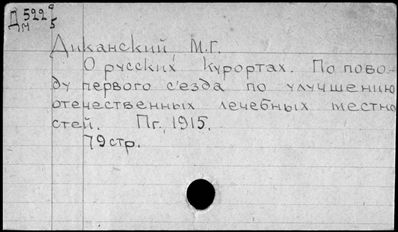 Д 522 9/5
м
Диканский, М.Г.
О русских курортах. По пово-
ду первого с'езда по улучшению
отечественных лечебных местно
стей. Пг., 1915.
79 стр.